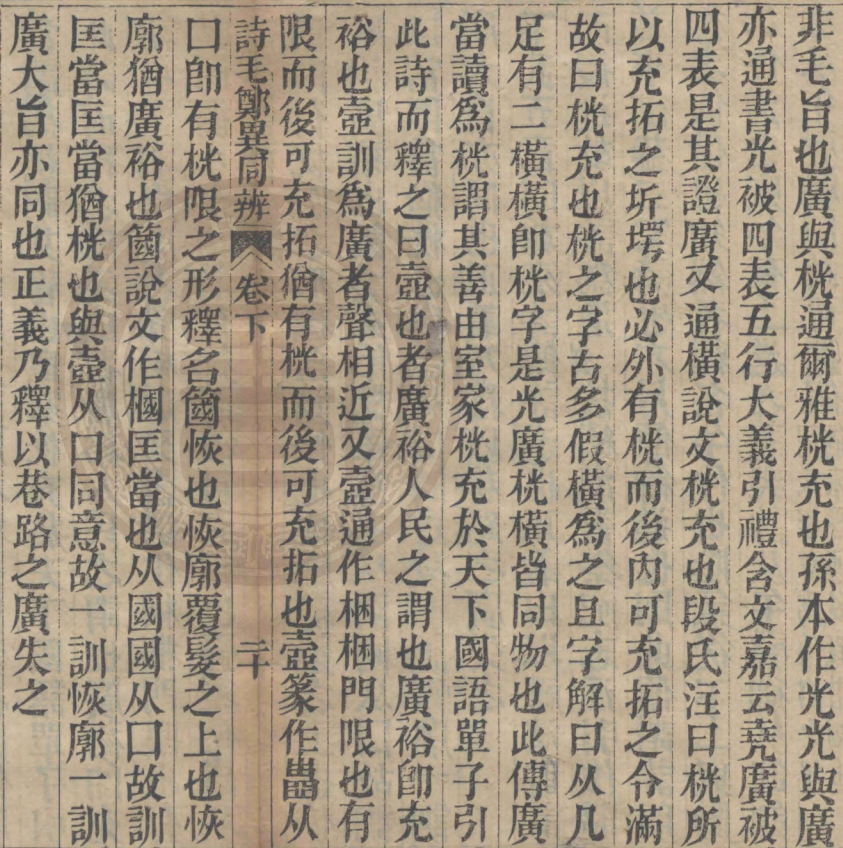 非毛旨也廣與桄通爾雅桄充也孫本作光光與廣
亦通書光被四表五行大義引禮含文嘉云堯廣被
四表是其證廣又通橫說文桄充也段氏注曰桄所
以充拓之圻堮也必外有桄而後內可充拓之令滿
故曰桄充也桄之字古多假橫爲之且字解曰从几
足有二橫橫卽桄字是光廣桄橫皆同物也此傳廣
當讀爲桄謂其善由室家桄充於天下國語單子引
此詩而釋之曰壼也者廣裕人民之謂也廣裕卽充
裕也壼訓爲廣者聲相近又壼通作梱梱門限也有
限而後可充拓猶有桄而後可充拓也壼篆作從从
詩毛鄭異同辨 卷下 二十
口卽有桄限之形釋名簂恢也恢廓覆髮之上也恢
廓猶廣裕也簂說文作槶匡當也从國國从囗故訓
匡當匡當猶桄也與壼从囗同意故一訓恢廓一訓
廣大旨亦同也正義乃釋以巷路之廣失之